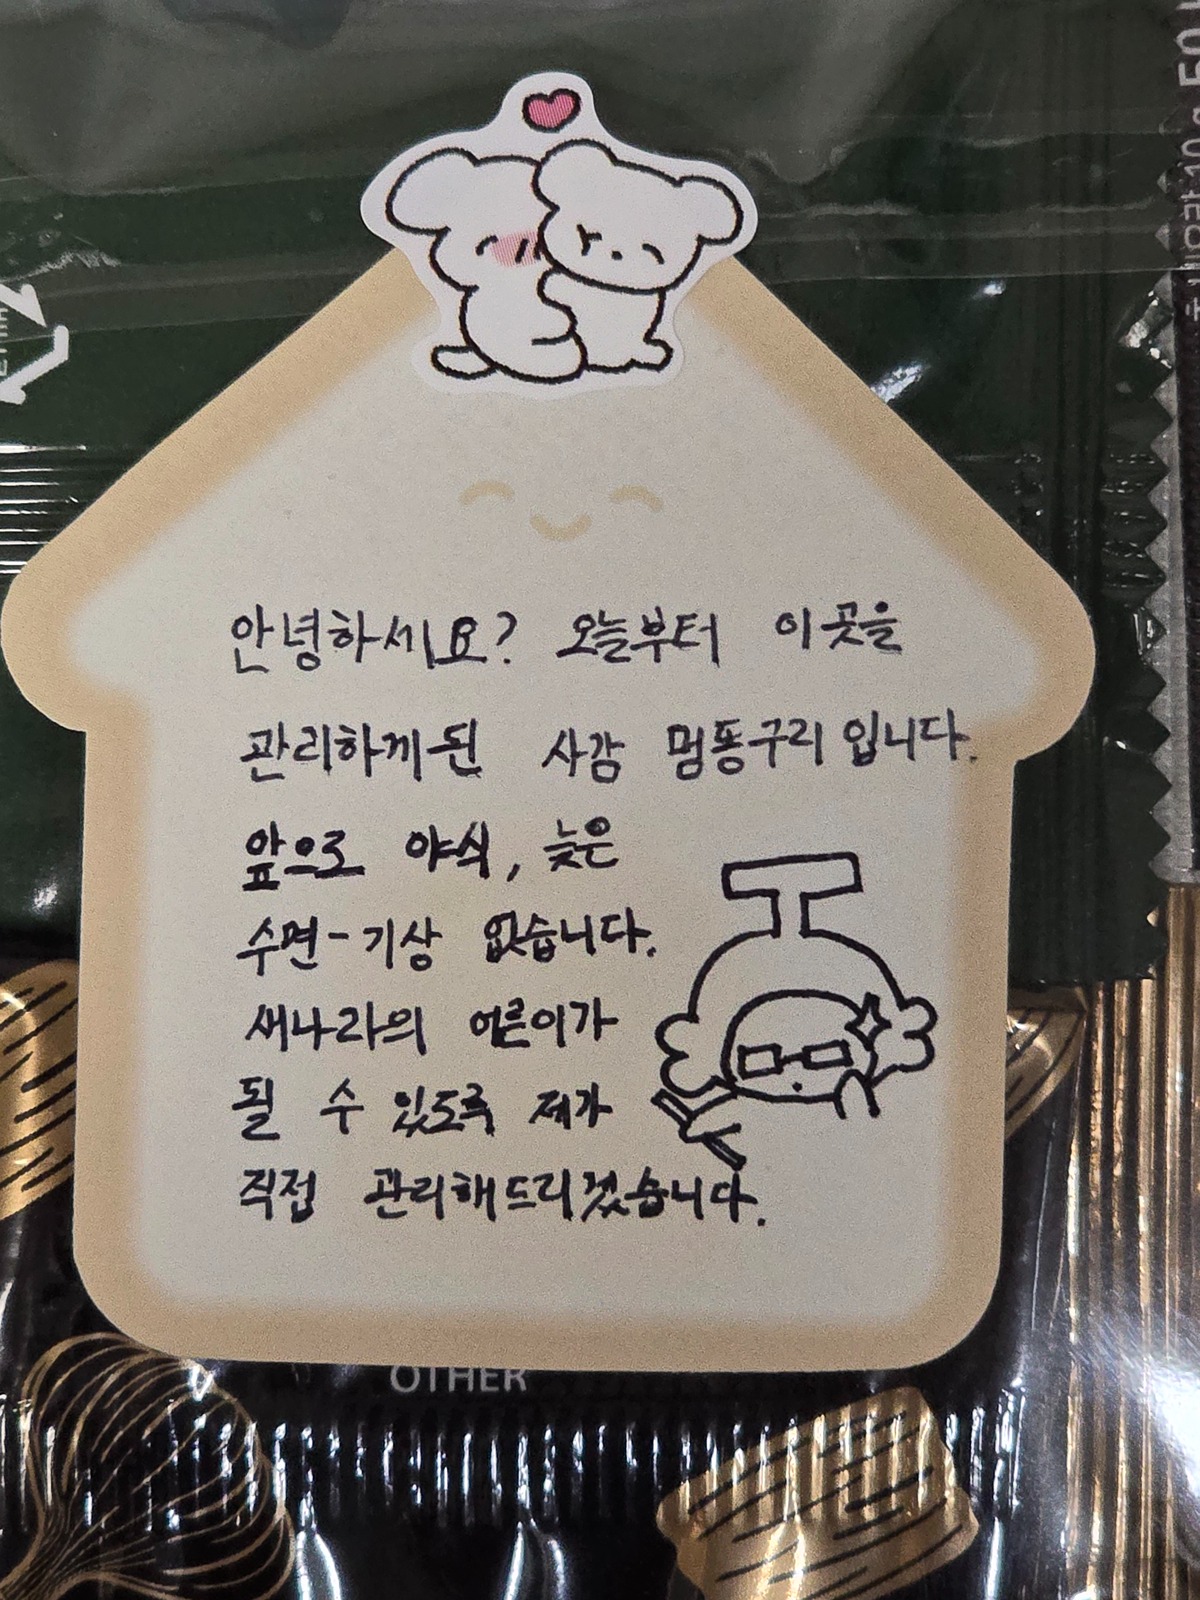 안녕하세요? 오늘부터 이곳을
관리하게된 사감 멈동구리입니다.
앞으로 야식, 늦은
수면-기상 없습니다.
새나라의 어른이가
될 수 있도록 제가
직접 관리해드리겠습니다.
OTHER